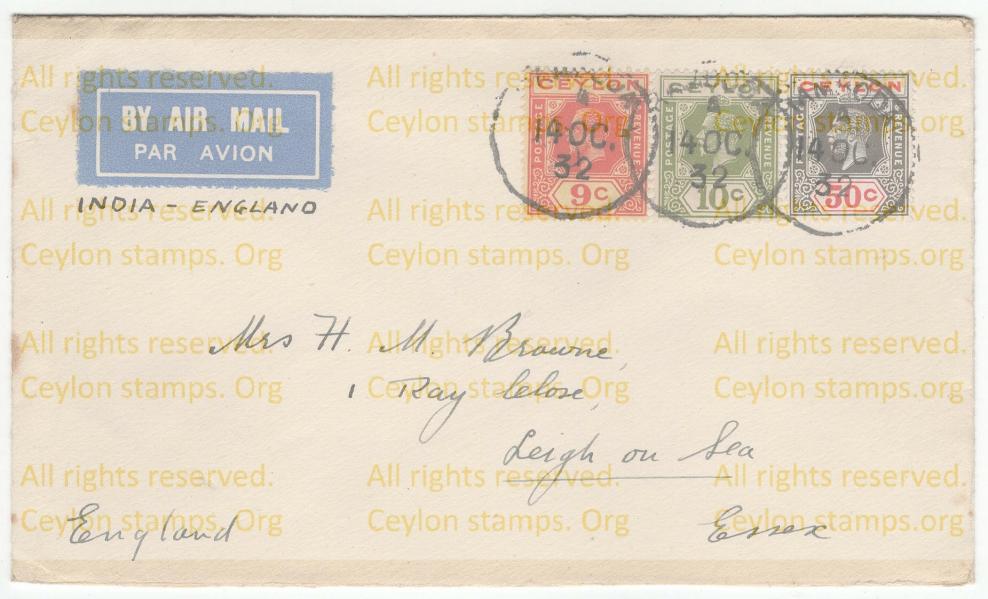 BY AIR MAIL
PAR AVION
INDIA - ENGLAND
CEYLON
POSTAGE
REVENUE
9c
CEYLON
POSTAGE
REVENUE
10c
CEYLON
POSTAGE
REVENUE
50c
4
14 OC.
32
4
14 OC.
32
14 OC
32
Mrs H. M. Browne,
1 Ray Close,
Leigh on Sea
England
Essex
All rights reserved. All rights reserved. All rights reserved.
Ceylon stamps. Org Ceylon stamps. Org Ceylon stamps.org
All rights reserved. All rights reserved. All rights reserved.
Ceylon stamps. Org Ceylon stamps. Org Ceylon stamps.org
All rights reserved. All rights reserved. All rights reserved.
Ceylon stamps. Org Ceylon stamps. Org Ceylon stamps.org
All rights reserved. All rights reserved. All rights reserved.
Ceylon stamps. Org Ceylon stamps. Org Ceylon stamps.org